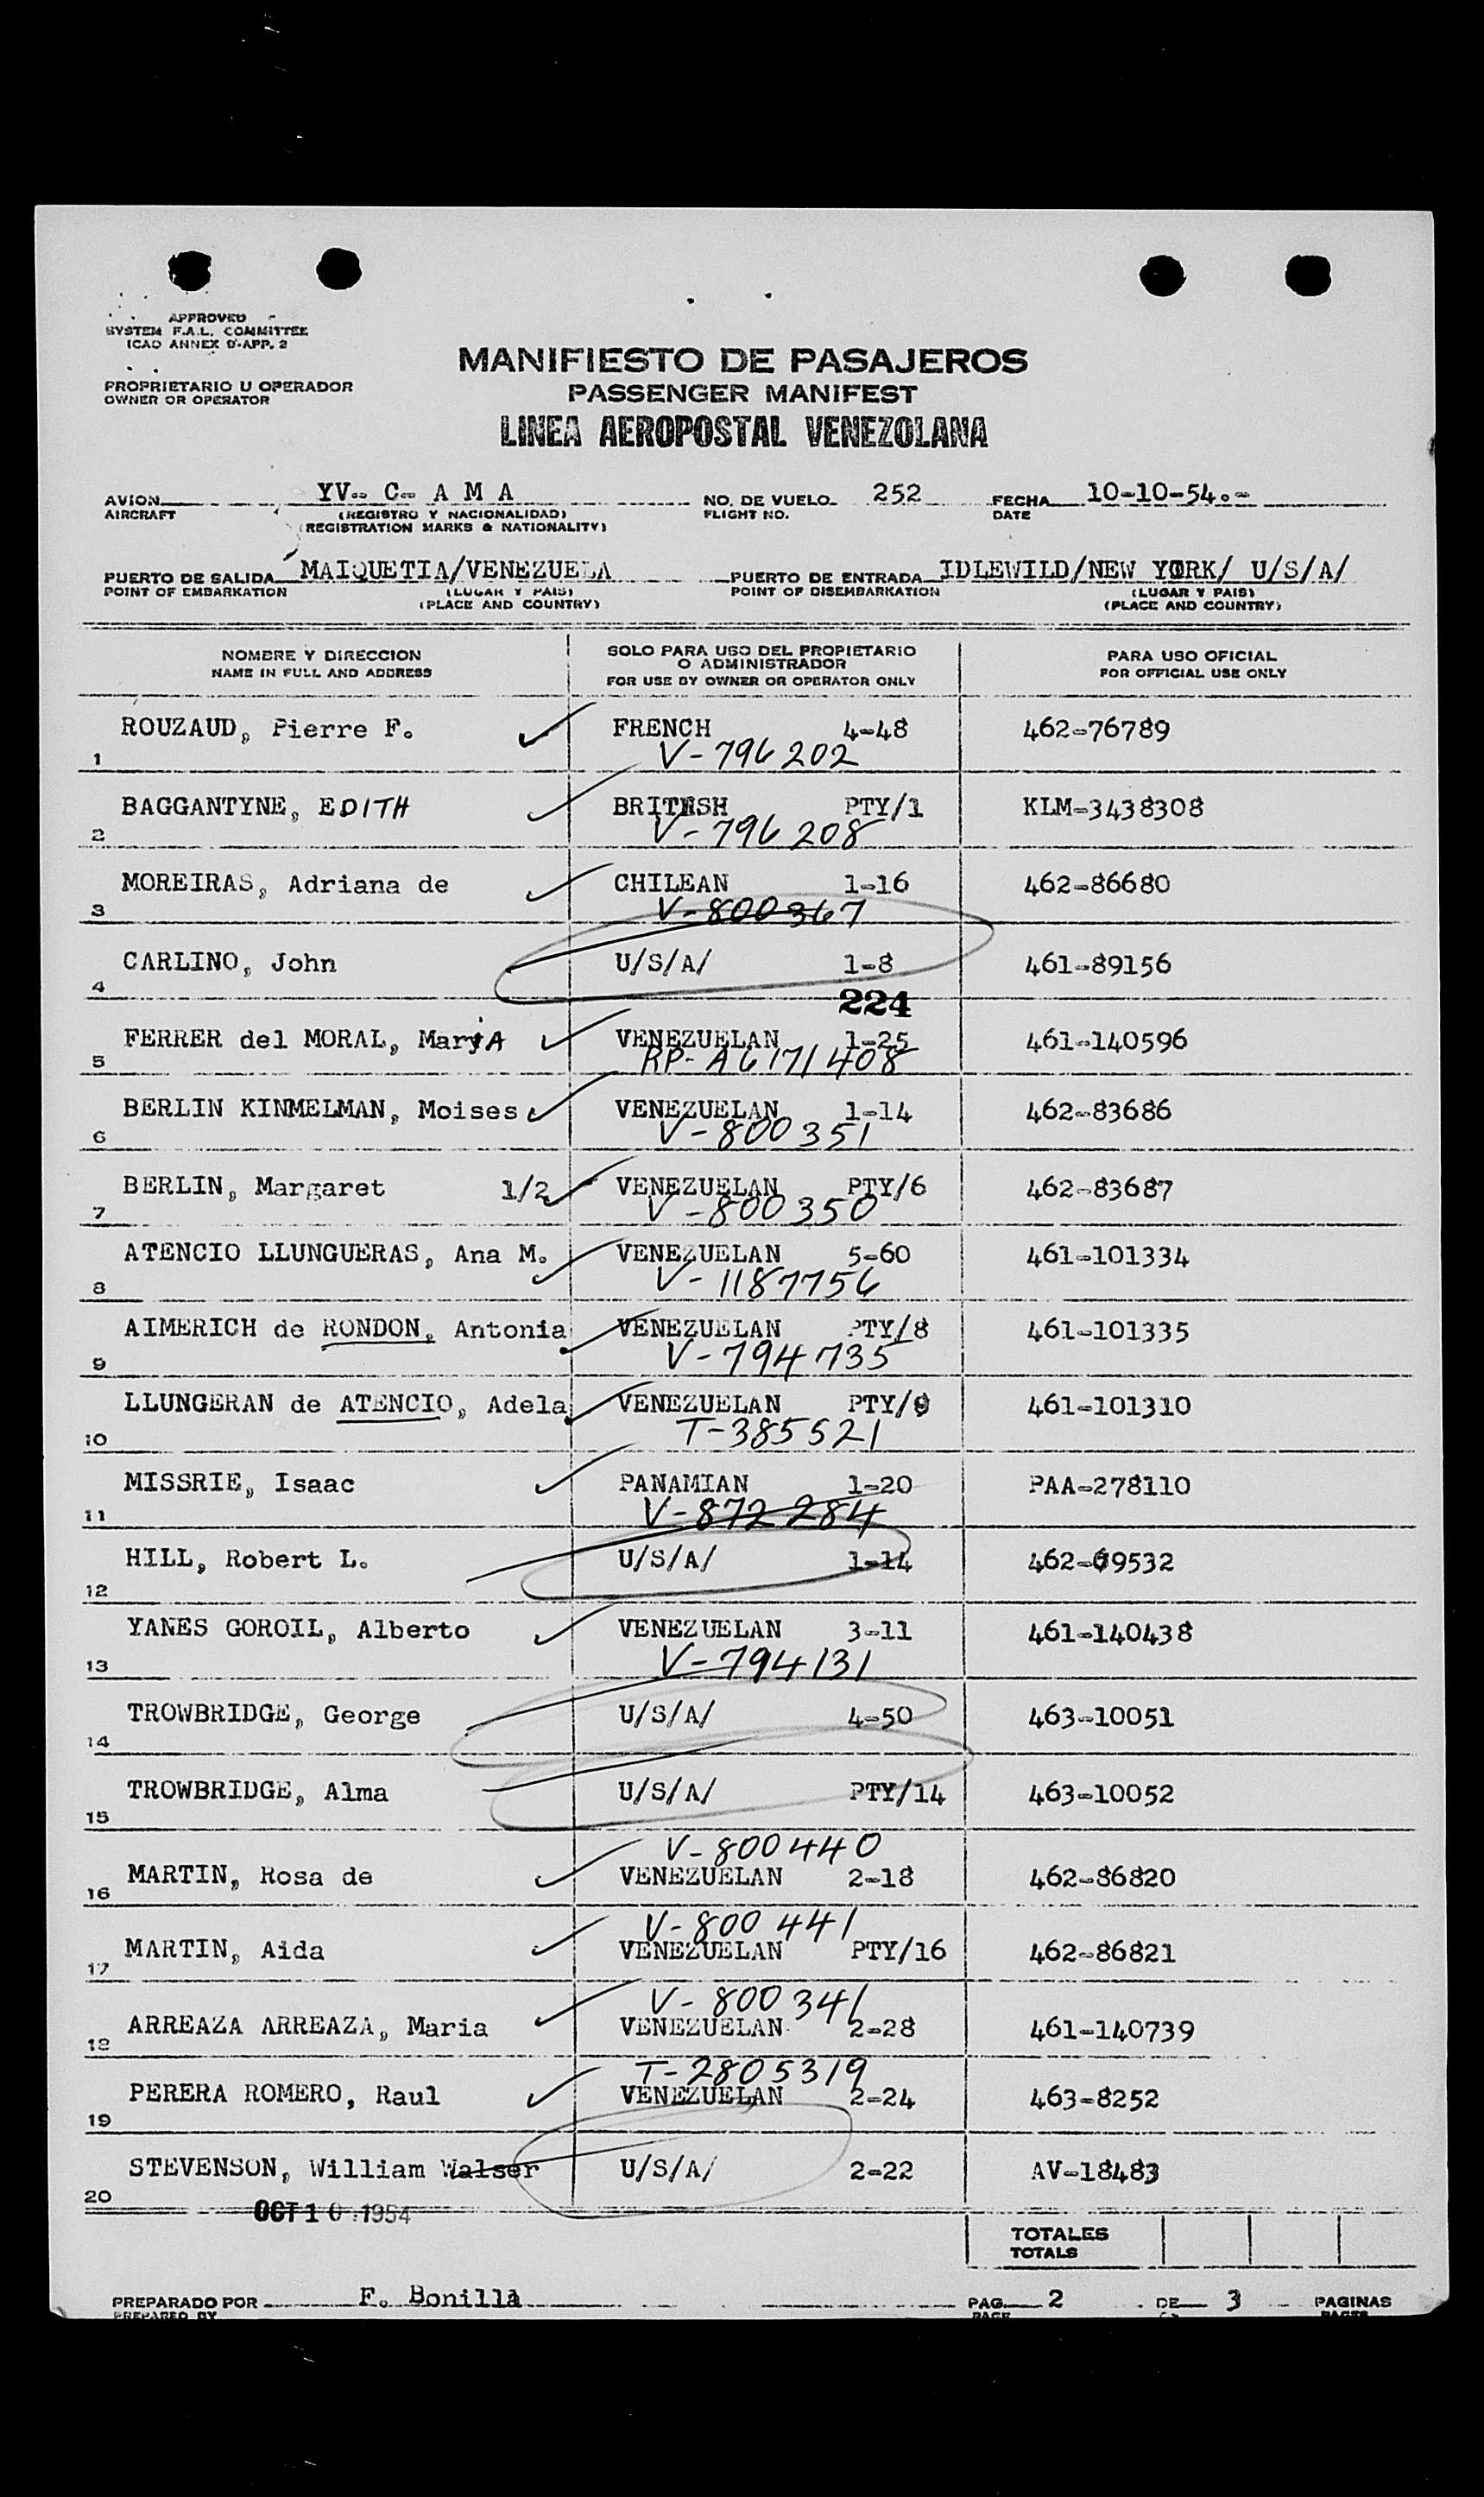 APPROVED
SYSTEM F.A.L. COMMITTEE
ICAO ANNEX 9-APP. 2
PROPRIETARIO U OPERADOR
OWNER OR OPERATOR
MANIFIESTO DE PASAJEROS
PASSENGER MANIFEST
LINEA AEROPOSTAL VENEZOLANA
AVION YV- C- A M A NO. DE VUELO 252 FECHA 10-10-54.-
AIRCRAFT (REGISTRO Y NACIONALIDAD) FLIGHT NO. DATE
(REGISTRATION MARKS & NATIONALITY)
PUERTO DE SALIDA MAIQUETIA/VENEZUELA PUERTO DE ENTRADA IDLEWILD/NEW YORK/ U/S/A/
POINT OF EMBARKATION (LUGAR Y PAIS) POINT OF DISEMBARKATION (LUGAR Y PAIS)
(PLACE AND COUNTRY) (PLACE AND COUNTRY)
NOMBRE Y DIRECCION SOLO PARA USO DEL PROPIETARIO PARA USO OFICIAL
O ADMINISTRADOR
NAME IN FULL AND ADDRESS FOR USE BY OWNER OR OPERATOR ONLY FOR OFFICIAL USE ONLY
ROUZAUD, Pierre F. FRENCH 4-48 462-76789
1 V-796202
BAGGANTYNE, EDITH BRITISH PTY/1 KLM-3438308
2 V-796208
MOREIRAS, Adriana de CHILEAN 1-16 462-86680
3 V-800367
CARLINO, John U/S/A/ 1-8 461-89156
4 224
FERRER del MORAL, MariA VENEZUELAN 1-25 461-140596
5 RP-A6171408
BERLIN KINMELMAN, Moises VENEZUELAN 1-14 462-83686
6 V-800351
BERLIN, Margaret 1/2 VENEZUELAN PTY/6 462-83687
7 V-800350
ATENCIO LLUNGUERAS, Ana M. VENEZUELAN 5-60 461-101334
8 V-1187756
AIMERICH de RONDON, Antonia VENEZUELAN PTY/8 461-101335
9 V-794735
LLUNGERAN de ATENCIO, Adela VENEZUELAN PTY/9 461-101310
10 T-385521
MISSRIE, Isaac PANAMIAN 1-20 PAA-278110
11 V-872284
HILL, Robert L. U/S/A/ 1-14 462-69532
12
YANES GOROIL, Alberto VENEZUELAN 3-11 461-140438
13 V-794131
TROWBRIDGE, George U/S/A/ 4-50 463-10051
14
TROWBRIDGE, Alma U/S/A/ PTY/14 463-10052
15
V-800440
MARTIN, Rosa de VENEZUELAN 2-18 462-86820
16
V-800441
MARTIN, Aida VENEZUELAN PTY/16 462-86821
17
V-800341
ARREAZA ARREAZA, Maria VENEZUELAN 2-28 461-140739
18
T-2805319
PERERA ROMERO, Raul VENEZUELAN 2-24 463-8252
19
STEVENSON, William Walser U/S/A/ 2-22 AV-18483
20
OCT 10 1954
TOTALES
TOTALS
PREPARADO POR F. Bonilla PAG. 2 DE 3 PAGINAS
PREPARED BY PAGE PAGES